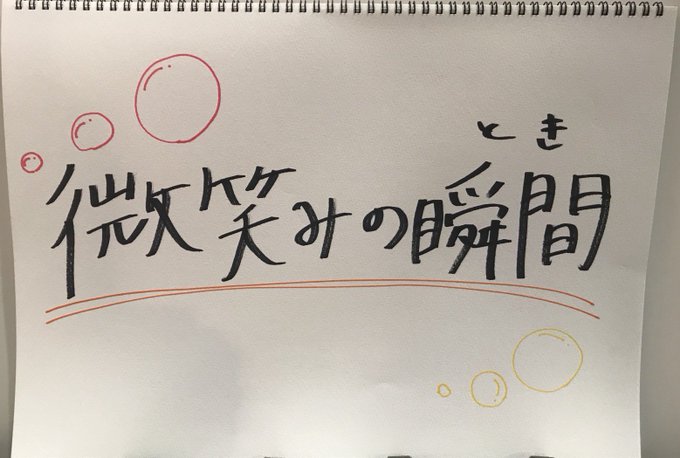 とき
微笑みの瞬間